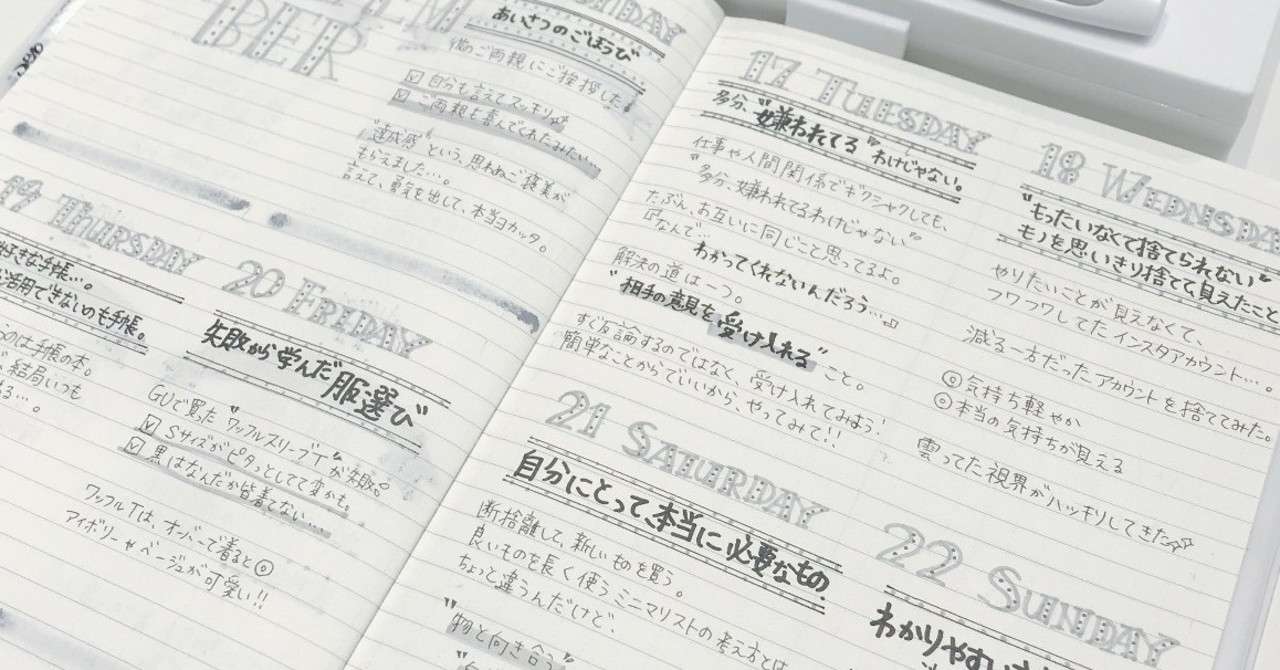 BER
DAY
あいさつのごほうび
彼のご両親にご挨拶した。
☑ 自分も言えてスッキリ☆
☑ ご両親も喜んでくれたみたい…
"達成感"という、思わぬご褒美が
もらえました…。
言えて、勇気を出して、本当ヨカッタ。
19 THURSDAY
好きな手帳…。
活用できないのも手帳。
のは手帳の本。
結局いつも
る…。
20 FRIDAY
失敗から学んだ服選び
GUで買った"ワッフルスリーブT"が失敗。
☑ Sサイズがピタっとしてて変かも。
☑ 黒はなんだか皆着てない…
ワッフルTは、オーバーで着ると◎
アイボリーやベージュが可愛い!!
17 TUESDAY
多分、"嫌われてる"わけじゃない。
仕事や人間関係でギクシャクしても、
"多分、嫌われてるわけじゃない"
たぶん、お互いに同じこと思ってるよ。
『なんで…
わかってくれないんだろう…』
解決の道は一つ。
"相手の意見を受け入れる"こと。
すぐ反論するのではなく、受け入れてみよう!
簡単なことからでいいから、やってみて!!
18 WEDNESDA
"もったいなくて捨てられない"
モノを思いきり捨てて、見えたこと
やりたいことが見えなくて、
フワフワしてたインスタアカウント…。
減る一方だったアカウントを捨ててみた。
◎気持ち軽やか
◎本当の気持ちが見える
曇ってた視界がハッキリしてきた☆
21 SATURDAY
自分にとって、本当に必要なもの
断捨離して、新しいものを買う。
良いものを長く使うミニマリストの考え方とは
ちょっと違うんだけど、
"物と向き合う
22 SUNDAY
わかりやすい